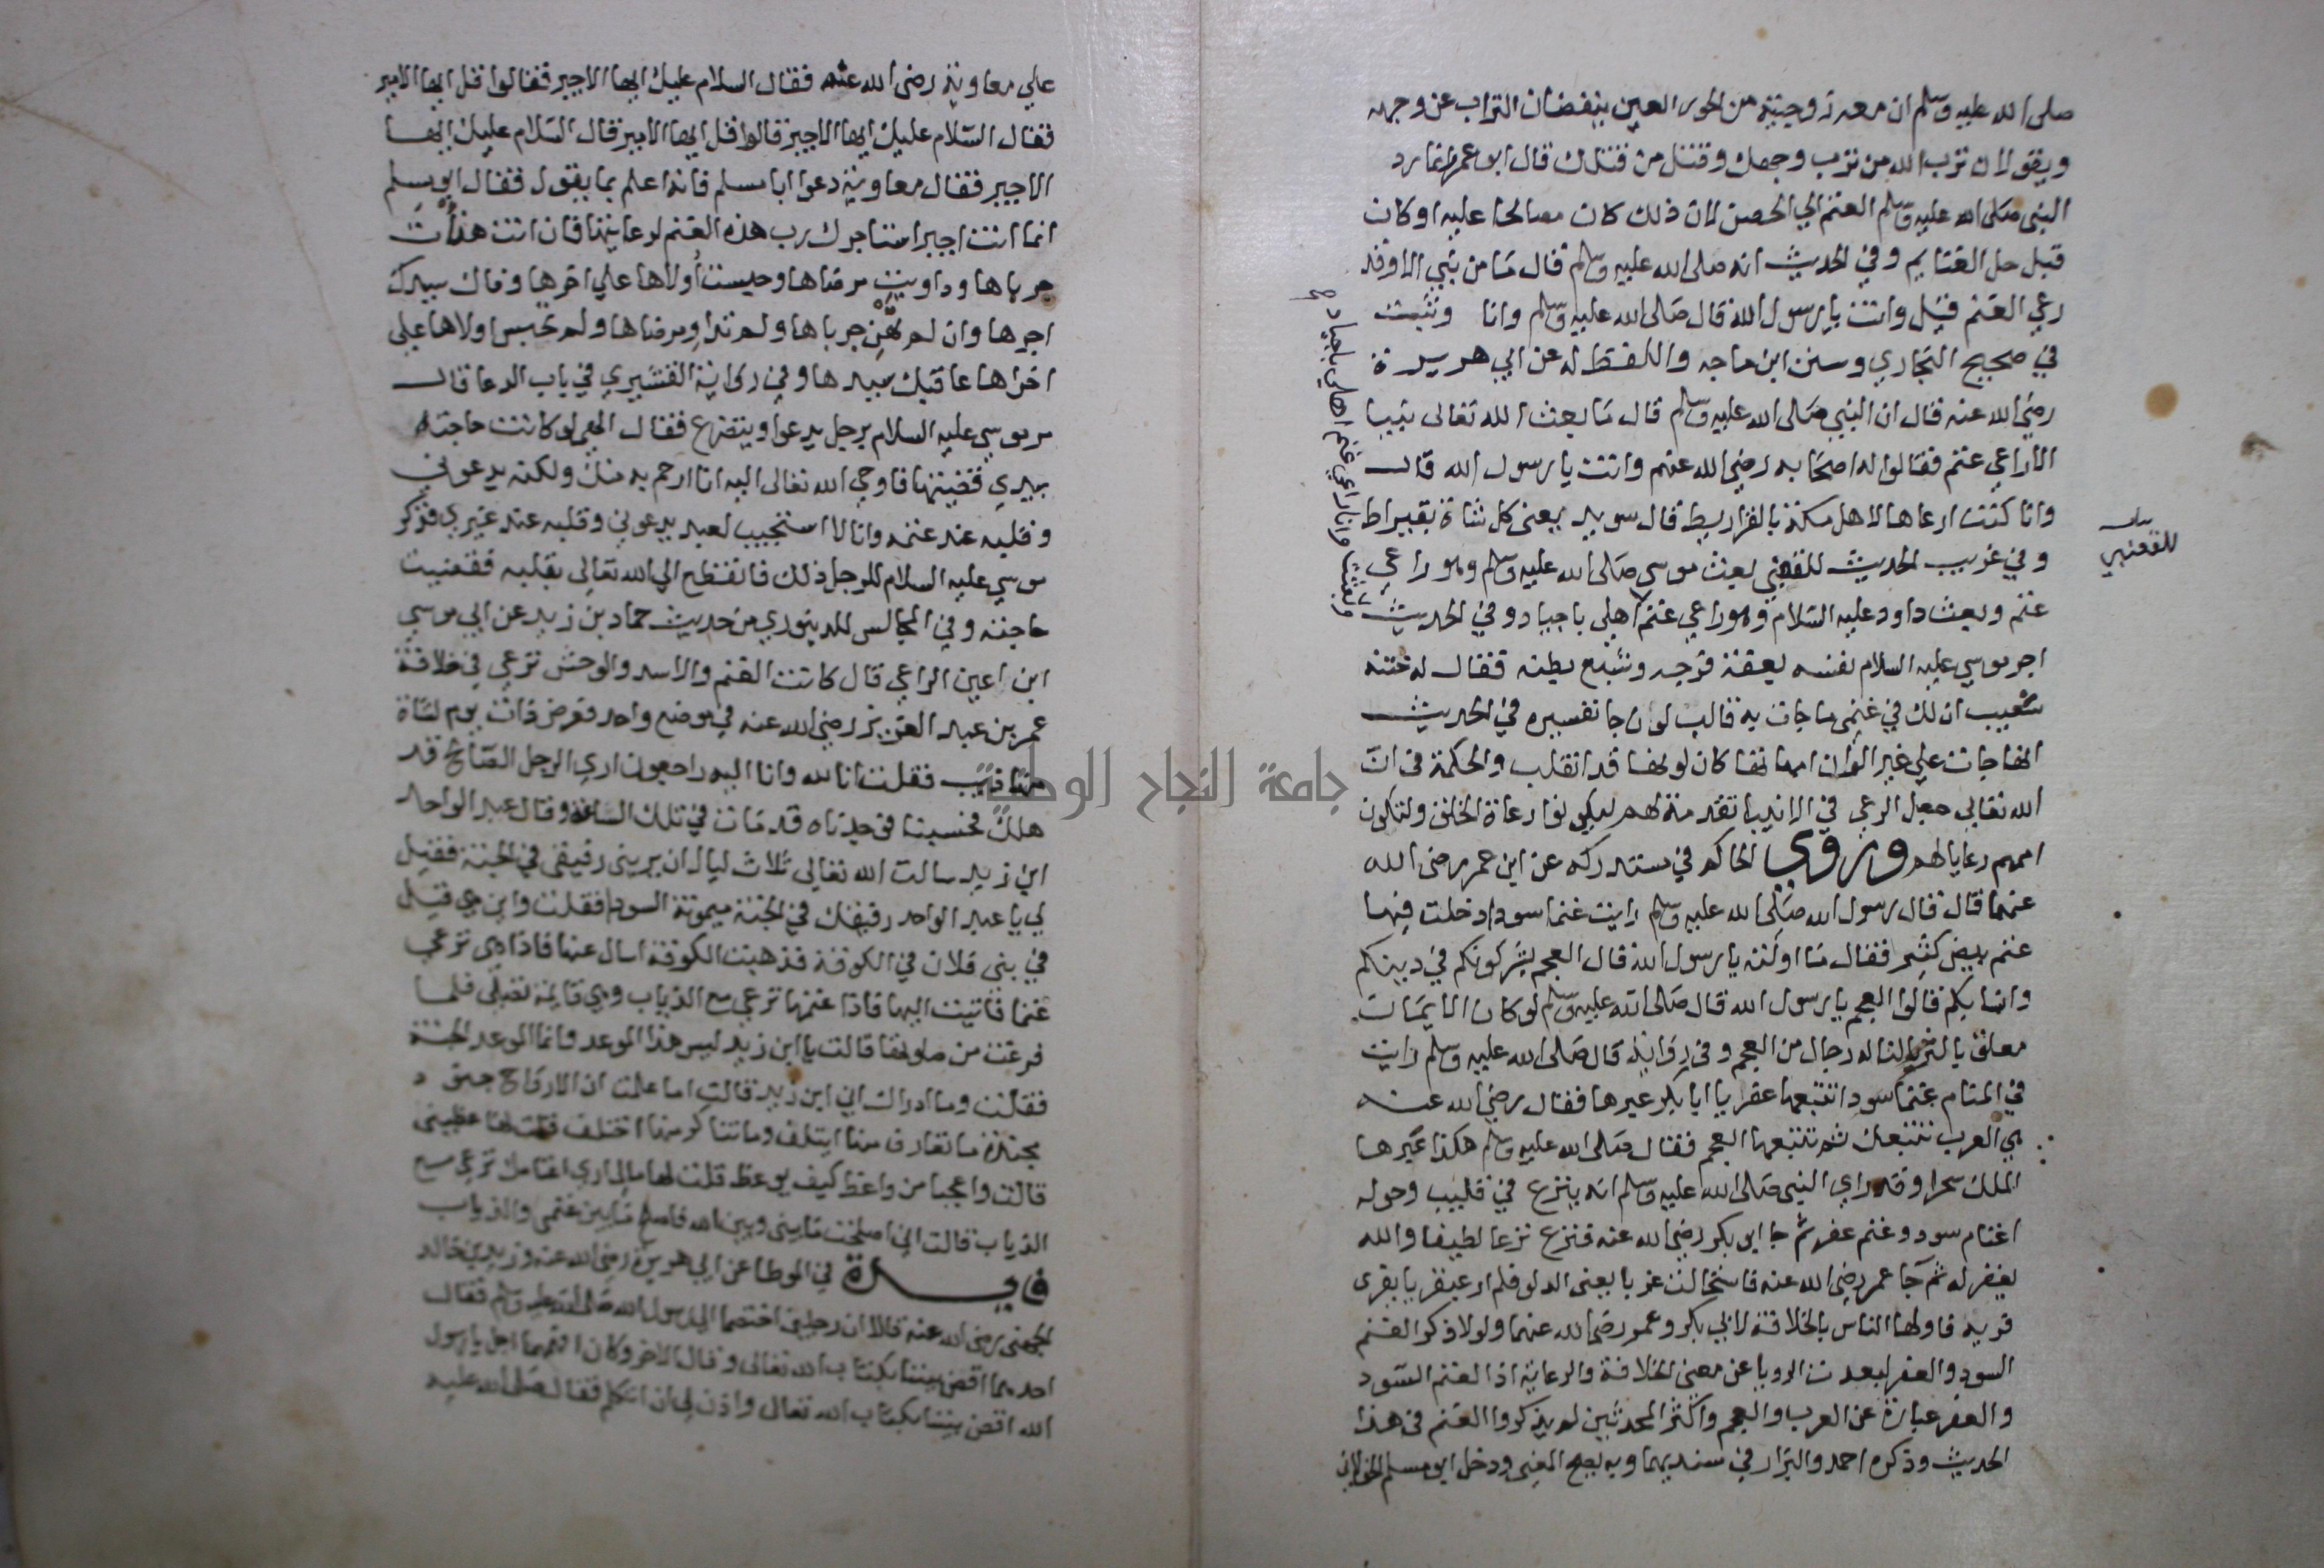 صلى الله عليه وسلم ان معه زوجيته من الحور العين ينفضان التراب عن وجهه
ويقولان ترب الله من ترب وجهك وقتل من قتلك قال ابو عمر انما رد
النبي صلى الله عليه وسلم الغنم الي الحصن لان ذلك كان مصالحا عليه او كان
قبل حل الغنايم وفي الحديث انه صلى الله عليه وسلم قال ما من نبي الا وقد
رعي الغنم قيل وانت يا رسول الله قال صلى الله عليه وسلم وانا وثبت
في صحيح البخاري وسنن ابن ماجه واللفظ له عن ابي هريرة
رضي الله عنه قال ان النبي صلى الله عليه وسلم قال ما بعث الله تعالى نبيا
الا راعي غنم فقالوا له اصحابه رضي الله عنهم وانت يا رسول الله قال
وانا كنت ارعاها لاهل مكة بالقراريط قال سويد يعني كل شاة بقيراط
وفي غريب الحديث للقتبي بعث موسى صلى الله عليه وسلم وهو راعي
غنم وبعث داود عليه السلام وهو راعي غنم اهلي باجياد وفي الحديث
وبعثت وانا راعي غنم اهلي باجياد
للقعنبي
اجر موسي عليه السلام نفسه بعفة فرجه وشبع بطنه فقال له ختنه
شعيب ان لك في غنمي ما جات به قالب لون جا تفسيره في الحديث
انها جات علي غير الوان امهاتها كان لونها قد انقلب والحكمة في ان
الله تعالي جعل الرعي في الانبيا تقدمة لهم ليكونوا رعاة الخلق ولتكون
اممهم رعايا لهم وروي الحاكم في مستدركه عن ابن عمر رضي الله
عنهما قال قال رسول الله صلى الله عليه وسلم رايت غنما سودا دخلت فيها
غنم بيض كثير فقال ما اولته يا رسول الله قال العجم يشركونكم في دينكم
وانسابكم قالوا العجم يا رسول الله قال صلى الله عليه وسلم لو كان الايمان
معلق بالثريا لناله رجال من العجم وفي رواية قال صلى الله عليه وسلم رايت
في المنام غنما سودا تتبعها عفر يا ابا بكر عبرها فقال رضي الله عنه
هي العرب تتبعك ثم تتبعها العجم فقال صلى الله عليه وسلم هكذا عبرها
الملك سحرا وقد راي النبي صلى الله عليه وسلم انه ينزع في قليب وحوله
اغنام سود وغنم عفر ثم جا ابو بكر رضي الله عنه فنزع نزعا لطيفا والله
يغفر له ثم جا عمر رضي الله عنه فاستحالت غربا يعني الدلو فلم ار عبقريا يفري
فريه فاولها الناس بالخلافة لابي بكر وعمر رضي الله عنهما ولولا ذكر الغنم
السود والعفر لبعدت الرويا عن معني الخلافة والرعاية اذ الغنم السود
والعفر عبارة عن العرب والعجم واكثر المحدثين لم يذكروا الغنم في هذا
الحديث وذكره احمد والبزار في سنديهما وبه يصح المعني ودخل ابو مسلم الخولاني
علي معاوية رضي الله عنه فقال السلام عليك ايها الاجير فقالوا قل ايها الامير
فقال السلام عليك ايها الاجير قالوا قل ايها الامير قال السلام عليك ايها
الاجير فقال معاوية دعوا ابا مسلم فانه اعلم بما يقول فقال ابو مسلم
انما انت اجير استاجرك رب هذه الغنم لرعايتها فان انت هنات
جرباها وداويت مرضاها وحبست أولاها علي اخرها وفاك سيدك
اجرها وان لم تهن جرباها ولم تداو مرضاها ولم تحبس اولاها علي
اخراها عاقبك سيدها وفي رواية القشيري في باب الدعا قال
مر موسي عليه السلام برجل يدعوا ويتضرع فقال الهي لو كانت حاجته
بيدي قضيتها فاوحي الله تعالى اليه انا ارحم به منك ولكنه يدعوني
وقلبه عند غنمه وانا لا استجيب لعبد يدعوني وقلبه عند غيري فذكر
موسي عليه السلام للرجل ذلك فانقطع الي الله تعالي بقلبه فقضيت
حاجته وفي المجالس للدينوري من حديث حماد بن زيد عن ابي موسي
ابن اعين الراعي قال كانت الغنم والاسد والوحش ترعي في خلافة
عمر بن عبد العزيز رضي الله عنه في موضع واحد فعرض ذات يوم لشاة
منها ذيب فقلت انا لله وانا اليه راجعون اري الرجل الصالح قد
هلك فحسبنا فوجدناه قد مات في تلك الساعة وقال عبد الواحد
ابن زيد سالت الله تعالي ثلاث ليال ان يريني رفيقي في الجنة فقيل
لي يا عبد الواحد رفيقك في الجنة ميمونة السودا فقلت واين هي قيل
في بني فلان في الكوفة فذهبت الكوفة اسال عنها فاذا هي ترعي
غنما فاتيت اليها فاذا غنمها ترعي مع الذياب وهي قايمة تصلي فلما
فرغت من صلوتها قالت يا ابن زيد ليس هذا الموعد وانما الموعد الجنة
فقلت وما ادراك اني ابن زيد قالت اما علمت ان الارواح جنود
مجندة ما تعارف منها ايتلف وما تناكر منها اختلف فقلت لها عظيني
قالت واعجبا من واعظ كيف يوعظ قلت لها مالي اري اغنامك ترعي مع
الذياب قالت اني اصلحت ما بيني وبين الله فاصلح ما بين غنمي والذياب
فايدة في الموطا عن ابي هريرة رضي الله عنه وزيد بن خالد
الجهني رضي الله عنه قالا ان رجلين اختصما الي رسول الله صلى الله عليه وسلم فقال
احدهما اقض بيننا بكتاب الله تعالى وقال الاخر وكان افقههما اجل يا رسول
الله اقض بيننا بكتاب الله تعالى واذن لي ان اتكلم فقال صلى الله عليه
جامعة النجاح الوطنية